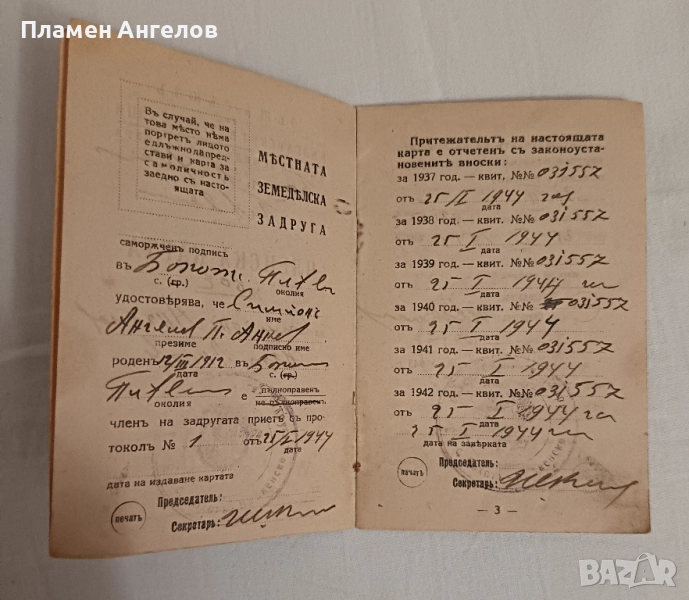 Пламен Ангелов
Въ случай, че на
това място нѣма
портретъ лицото
е длъжно да пред-
стави и карта за
самоличность
заедно съ насто-
ящата
МѢСТНАТА
ЗЕМЕДѢЛСКА
ЗАДРУГА
саморѫченъ подписъ
въ
с. (гр.) околия
удостовѣрява, че Симеонъ
име
Ангеловъ П. Ангелов
презиме подписно име
роденъ 12/III 1912 въ
дата с. (гр.)
е пълноправенъ
околия не-пълноправенъ
членъ на задругата приетъ съ про-
токолъ № 1 отъ 25/I 1944
дата
дата на издаване картата
Председатель:
печать Секретарь:
Притежательтъ на настоящата
карта е отчетенъ съ законоуста-
новенитѣ вноски:
за 1937 год. — квит. №№ 031557
отъ 25 II 1944
дата
за 1938 год. — квит. №№ 031557
отъ 25 I 1944
дата
за 1939 год. — квит. №№ 031557
отъ 25 I 1944
дата
за 1940 год. — квит. №№ 031557
отъ 25 I 1944
дата
за 1941 год. — квит. №№ 031557
отъ 25 I 1944
дата
за 1942 год. — квит. №№ 031557
отъ 25 I 1944
дата
25 I 1944
дата на завѣрката
Председатель:
печать Секретарь:
— 3 —
BAZAR